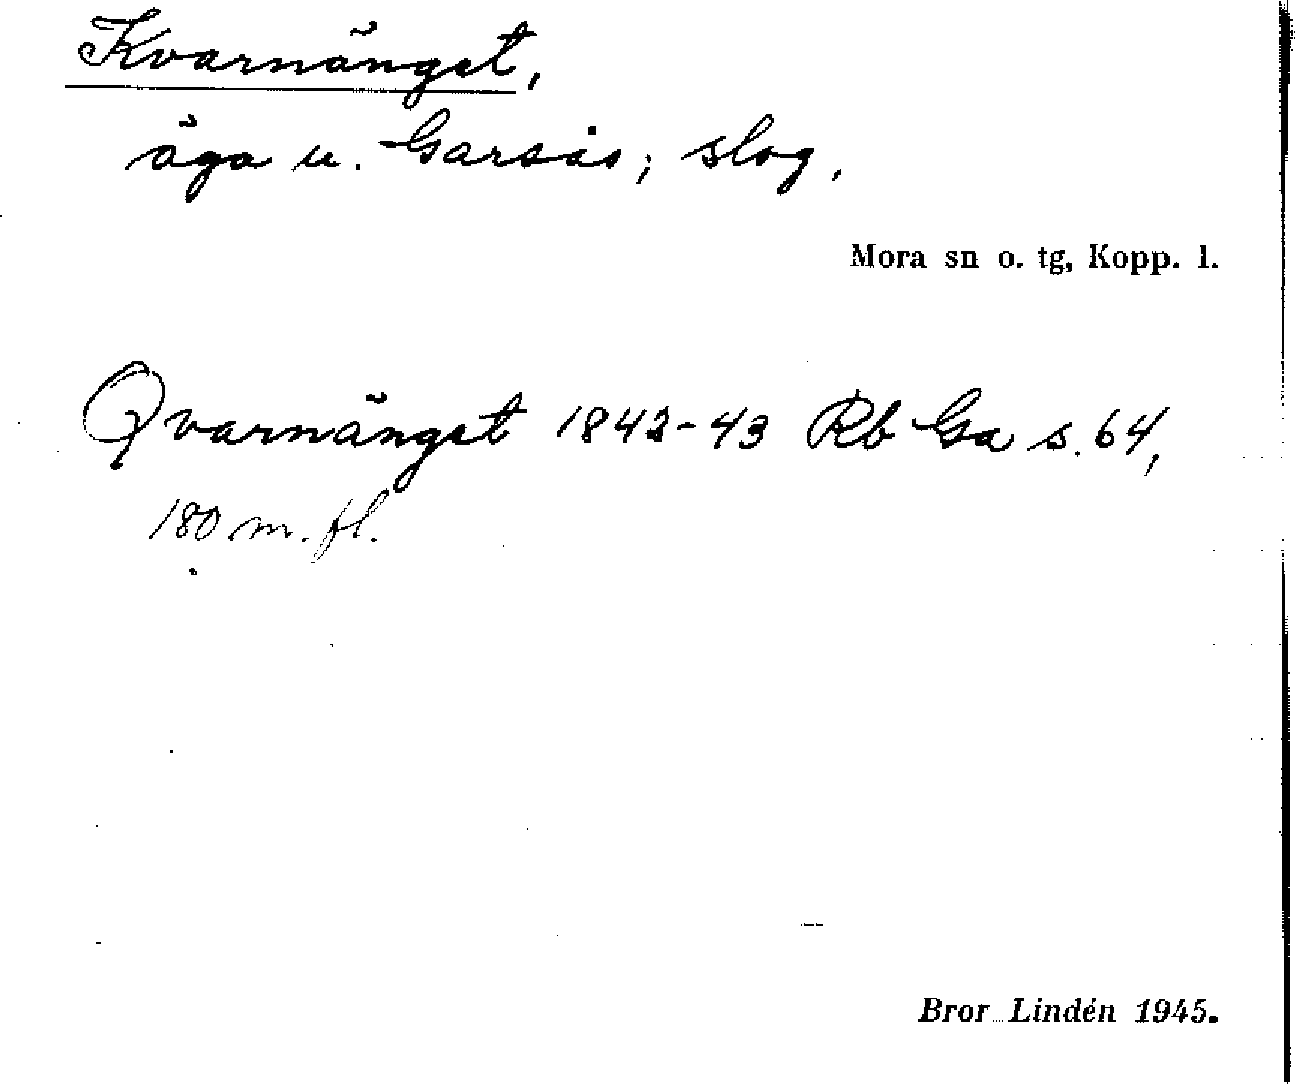 Kvarnänget,
äga u. Garsås; slog.
Mora sn o. tg, Kopp. l.
Qvarnänget 1842-43 Rb Ga s. 64,
180 m. fl.
Bror Lindén 1945.